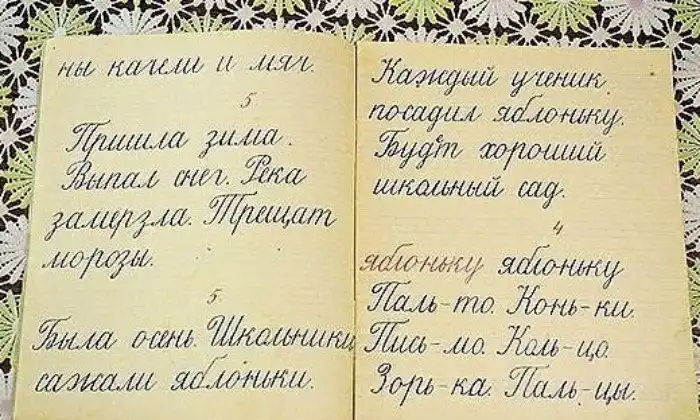 ны качели и мяч.
5
Пришла зима.
Выпал снег. Река
замерзла. Трещат
морозы.
5
Была осень. Школьники
сажали яблоньки.
Каждый ученик
посадил яблоньку.
Будет хороший
школьный сад.
4
яблоньку яблоньку
Паль-то. Конь-ки.
Пись-мо. Коль-цо.
Зорь-ка. Паль-цы.